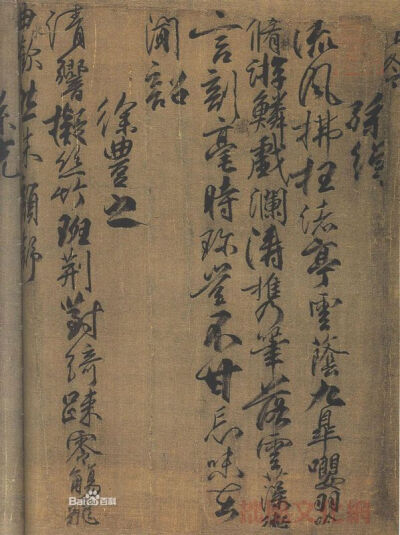 孫綽
流風拂枉渚亭雲蔭九皋嚶羽吟
脩游鱗戲瀾濤携筆落雲藻微
言剖毫時珍豈不甘忘味在
聞韶
徐豊之
清響擬絲竹班荊對綺疎零觴飛
曲歡然朱顏舒
Bai百科